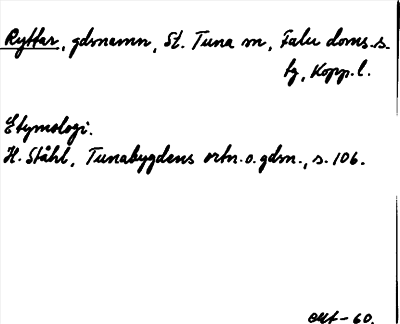 Ryttar, gdsnamn, St. Tuna sn, Falu doms.s.
fg, Kopp.l.
Etymologi.
H. Ståhl, Tunabygdens ortn. o. gdsn., s. 106.
okt - 60.